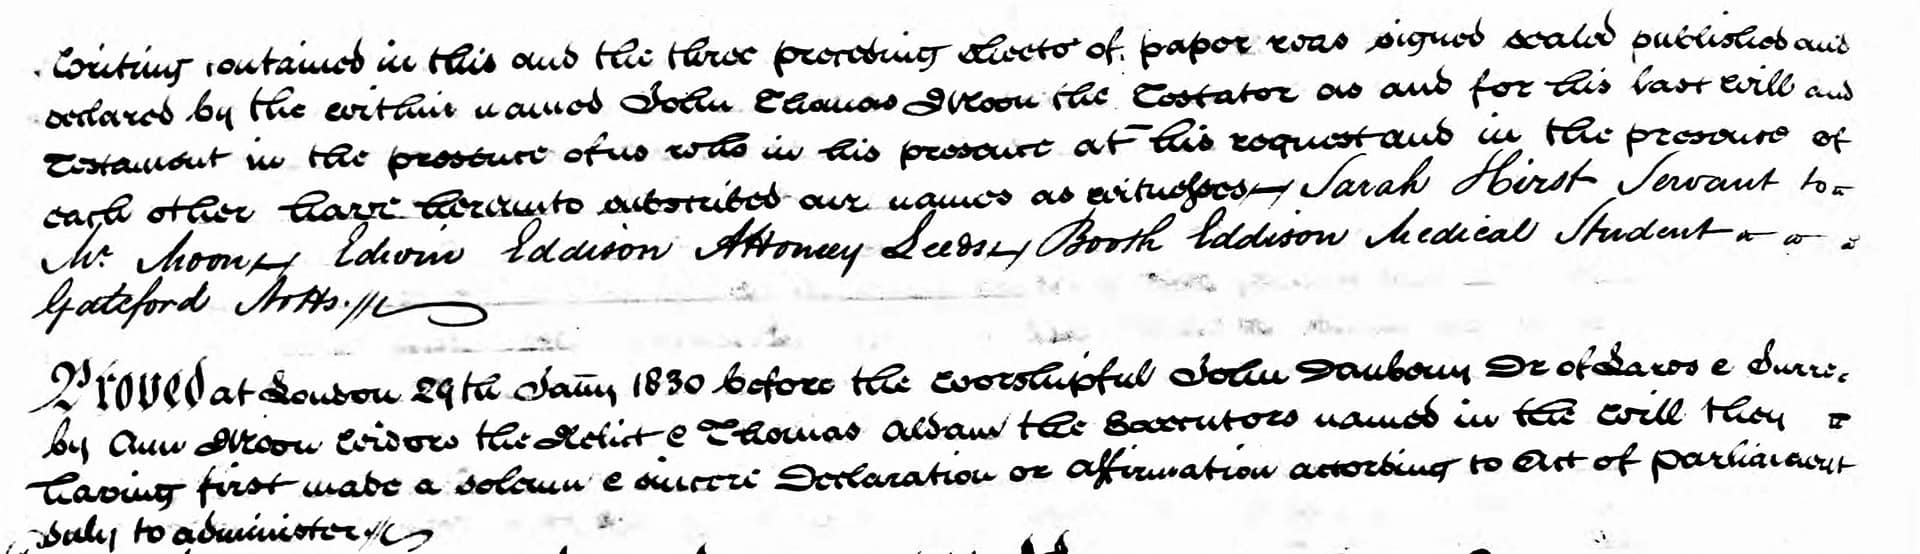 Writing contained in this and the three preceding sheets of paper was signed sealed published and
declared by the within named John Thomas Moon the Testator as and for his last will and
Testament in the presence of us who in his presence at his request and in the presence of
each other have hereunto subscribed our names as witnesses Sarah Hirst Servant to
Mr Moon Edwin Eddison Attorney Leeds Booth Eddison Medical Student
Gateford Notts.
Proved at London 29th Jany 1830 before the worshipful John Daubeny Dr of Laws & Surre.
by Ann Moon widow the Relict & Thomas Aldam the Executors named in the will they
having first made a solemn & sincere Declaration or affirmation according to Act of parliament
duly to administer